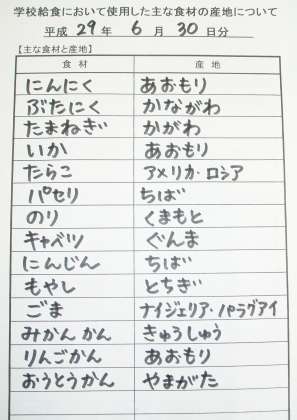 学校給食において使用した主な食材の産地について
平成 29 年 6 月 30 日分
【主な食材と産地】
食材 産地
にんにく あおもり
ぶたにく かながわ
たまねぎ かがわ
いか あおもり
たらこ アメリカ・ロシア
パセリ ちば
のり くまもと
キャベツ ぐんま
にんじん ちば
もやし とちぎ
ごま ナイジェリア・パラグアイ
みかん かん きゅうしゅう
りんごかん あおもり
おうとうかん やまがた